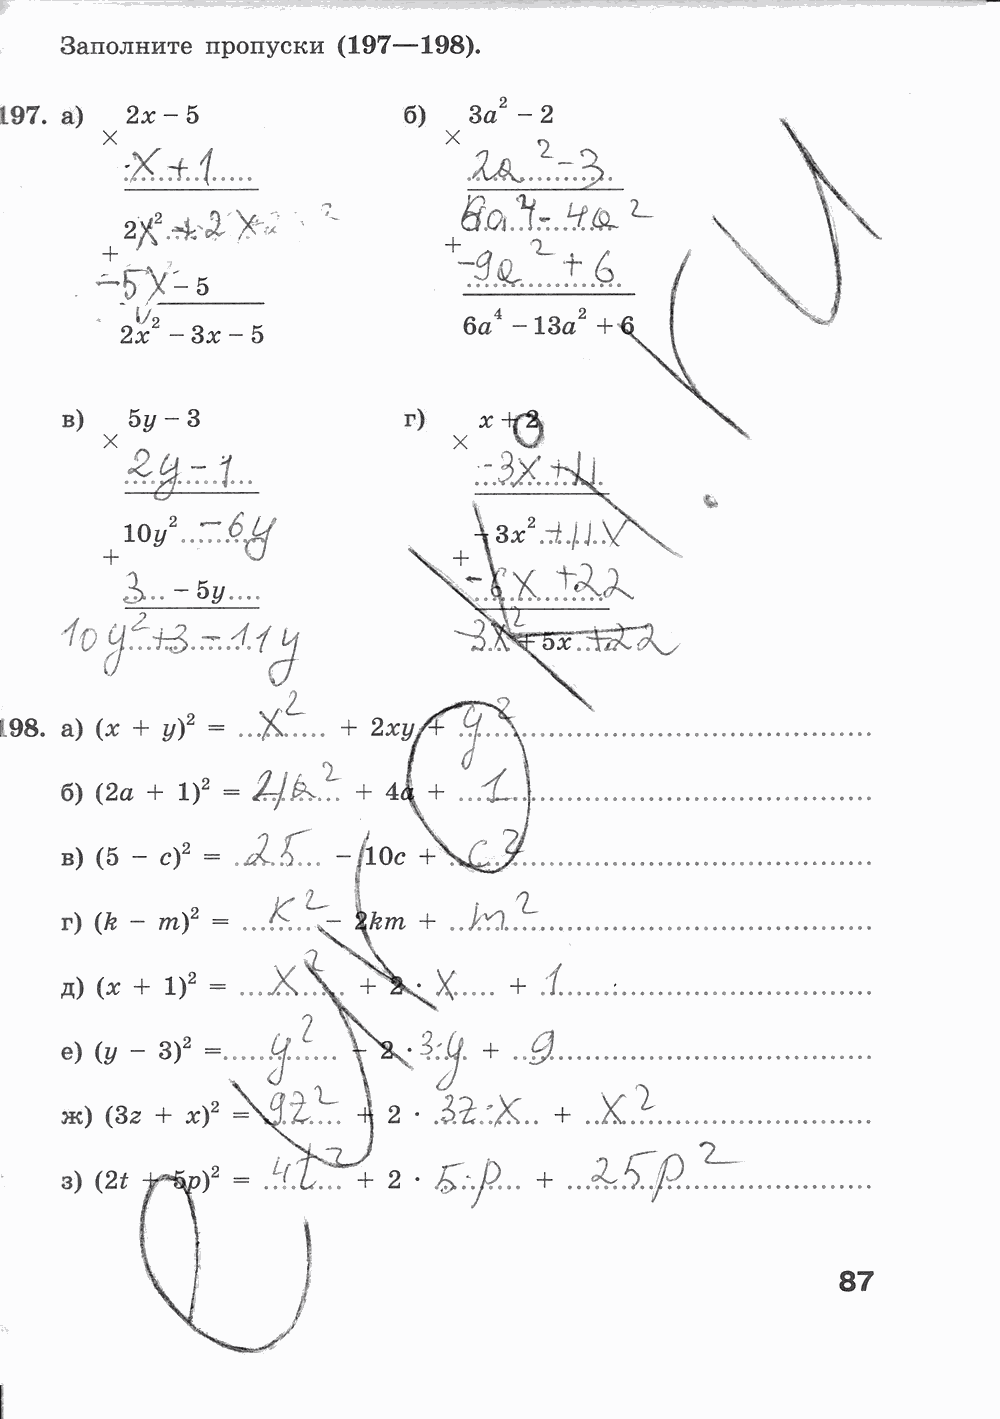 Заполните пропуски (197—198).
197. а) 2x − 5
×
x + 1
2x² + 2x
+
−5x − 5
2x² − 3x − 5
б) 3a² − 2
×
2a² − 3
6a⁴ − 4a²
+
−9a² + 6
6a⁴ − 13a² + 6
в) 5y − 3
×
2y − 1
10y² − 6y
+
3 − 5y
10y² + 3 − 11y
г) x + 2
×
−3x + 11
−3x² + 11x
+
−6x + 22
−3x² + 5x + 22
198. а) (x + y)² = x² + 2xy + y²
б) (2a + 1)² = 4a² + 4a + 1
в) (5 − c)² = 25 − 10c + c²
г) (k − m)² = k² − 2km + m²
д) (x + 1)² = x² + 2 · x + 1
е) (y − 3)² = y² − 2 · 3·y + 9
ж) (3z + x)² = 9z² + 2 · 3z·x + x²
з) (2t + 5p)² = 4t² + 2 · 5·p + 25p²
87